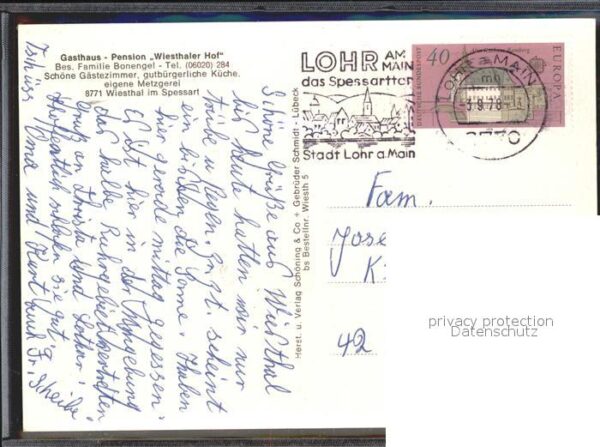 Gasthaus - Pension „Wiesthaler Hof"
Bes. Familie Bonengel - Tel. (06020) 284
Schöne Gästezimmer, gutbürgerliche Küche,
eigene Metzgerei
8771 Wiesthal im Spessart
Schöne Grüße aus Wiesthal
bis heute hatten wir nur
trübe u. Regen. Zr. Zt. scheint
ein bißchen die Sonne. Haben
hier gerade mittag gegessen.
Es ist hier in der Umgebung
das halbe Ruhrgebiet vertreten
Gruß an Christa und Lothar.
Hoffentlich schlafen sie gut.
Tschüss Oma und Kurt und Fr. Scheibe.
Herst. u. Verlag Schöning & Co + Gebrüder Schmidt - Lübeck
bs Bestellnr. Wiesth 5
LOHR AM MAIN
das Spessarttor
Stadt Lohr a. Main
LOHR a. MAIN
mo
8770
40
EUROPA
DEUTSCHE BUNDESPOST
Fam.
Jose
K
42
privacy protection
Datenschutz